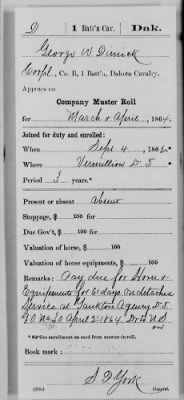 D | 1 Batt'n Cav. | Dak.
George W. Dimick
Corpl, Co. B, 1 Batt'n, Dakota Cavalry.
Appears on
Company Muster Roll
for March & April, 1864.
Joined for duty and enrolled:
When Sept 4, 1862*
Where Vermillion D. T.
Period 3 years.*
Present or absent Absent
Stoppage, $ 100 for
Due Gov't, $ 100 for
Valuation of horse, $ 100
Valuation of horse equipments, $ 100
Remarks: Pay due for Horse &
Equipments for 61 days. On detached
service at Yankton Agency D. T.
April 2 1864. Due U S
* See enrollment on card from muster-in roll.
Book mark:
S. D. York
Copyist.